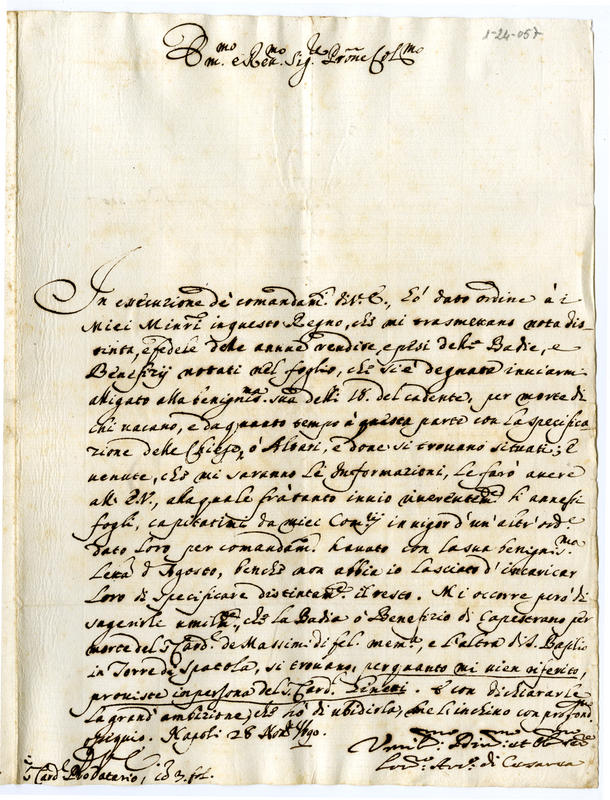 1-24-057
Em.mo e Rev.mo Sig.re P.rone Col.mo
In essecuzione de comandam.ti di V.E., hò dato ordine à i
Miei Minri in questo Regno, che mi trasmettano nota dis-
tinta, e fedele delle annue rendite, e pesi delle Badie, e
Benefizij notati nel foglio, che si è degnata inviarmi
alligato alla benignis.ma sua delli 18. del cadente, per morte di
chi vacano, e da quanto tempo à questa parte con la specifica
zione delle Chiese, ò Altari, e dove si trovano situati; E
venute, che mi saranno le Informazioni, le farò avere
all' E.V., alla quale frà tanto invio riverentem.te li annessi
fogli, capitatimi da miei Com.rij in vigor d'un altr' ord.e
dato loro per comandam.to havuto con la sua benignis.ma
Lettra d'Agosto, benche non abbia io lasciato d'incaricar
loro di specificare distintam.te il resto. Mi occorre però di
sugerirle umilm.te, che la Badia ò Benefizio di Capestrano per
morte del S. Card.le de Massimi di fel. mem.a, e l'altra di S. Basilio
in Torre di Spatola, si trovano, per quanto mi vien riferito,
proviste in persona del S. Card.le Ginetti. E con dichiararle
la grand' ambizione, che hò di ubidirla, me l'inchino con profond.mo
ossequio. Napoli 28 Nov.e
Di V.E.
S. Card.le Pro Datario, co 3. fol.
Umil.mo Div.mo et Obl.mo Ser.e